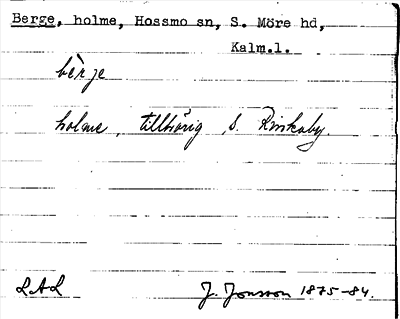 Berge, holme, Hossmo sn, S. Möre hd,
Kalm.l.
bèrje
holme, tillhörig S. Rinkaby.
LAL J. Jonsson 1875-84.